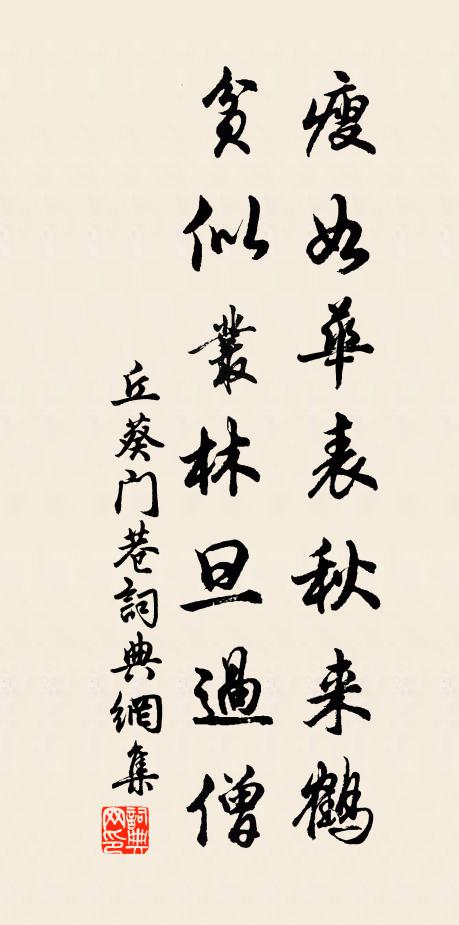 瘦如華表秋来鶴
貧似叢林旦過僧
丘葵门巷詞典網集
詞典网印